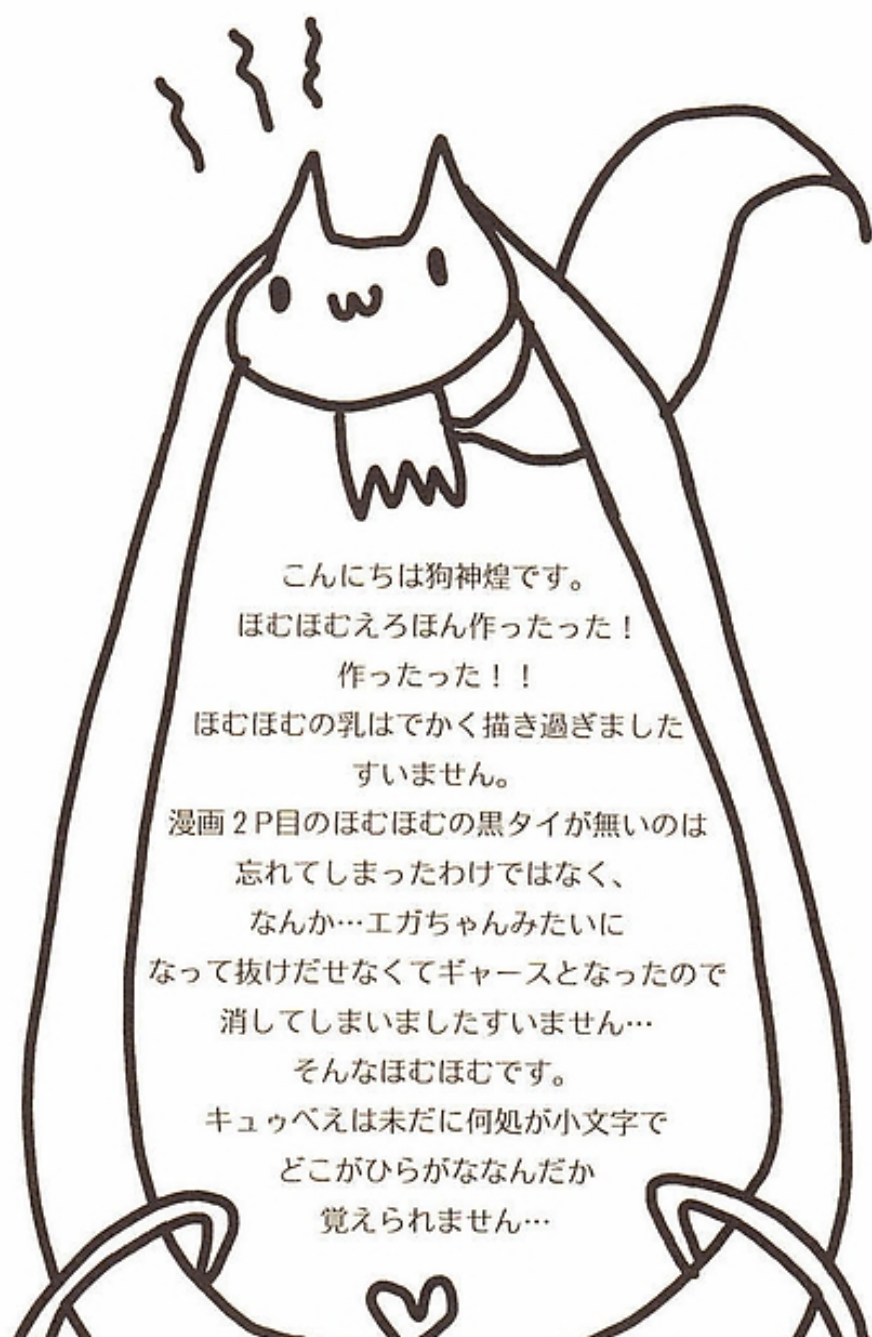 こんにちは狗神煌です。
ほむほむえろほん作ったった！
作ったった！！
ほむほむの乳はでかく描き過ぎました
すいません。
漫画２Ｐ目のほむほむの黒タイが無いのは
忘れてしまったわけではなく、
なんか…エガちゃんみたいに
なって抜けだせなくてギャースとなったので
消してしまいましたすいません…
そんなほむほむです。
キュゥべえは未だに何処が小文字で
どこがひらがななんだか
覚えられません…